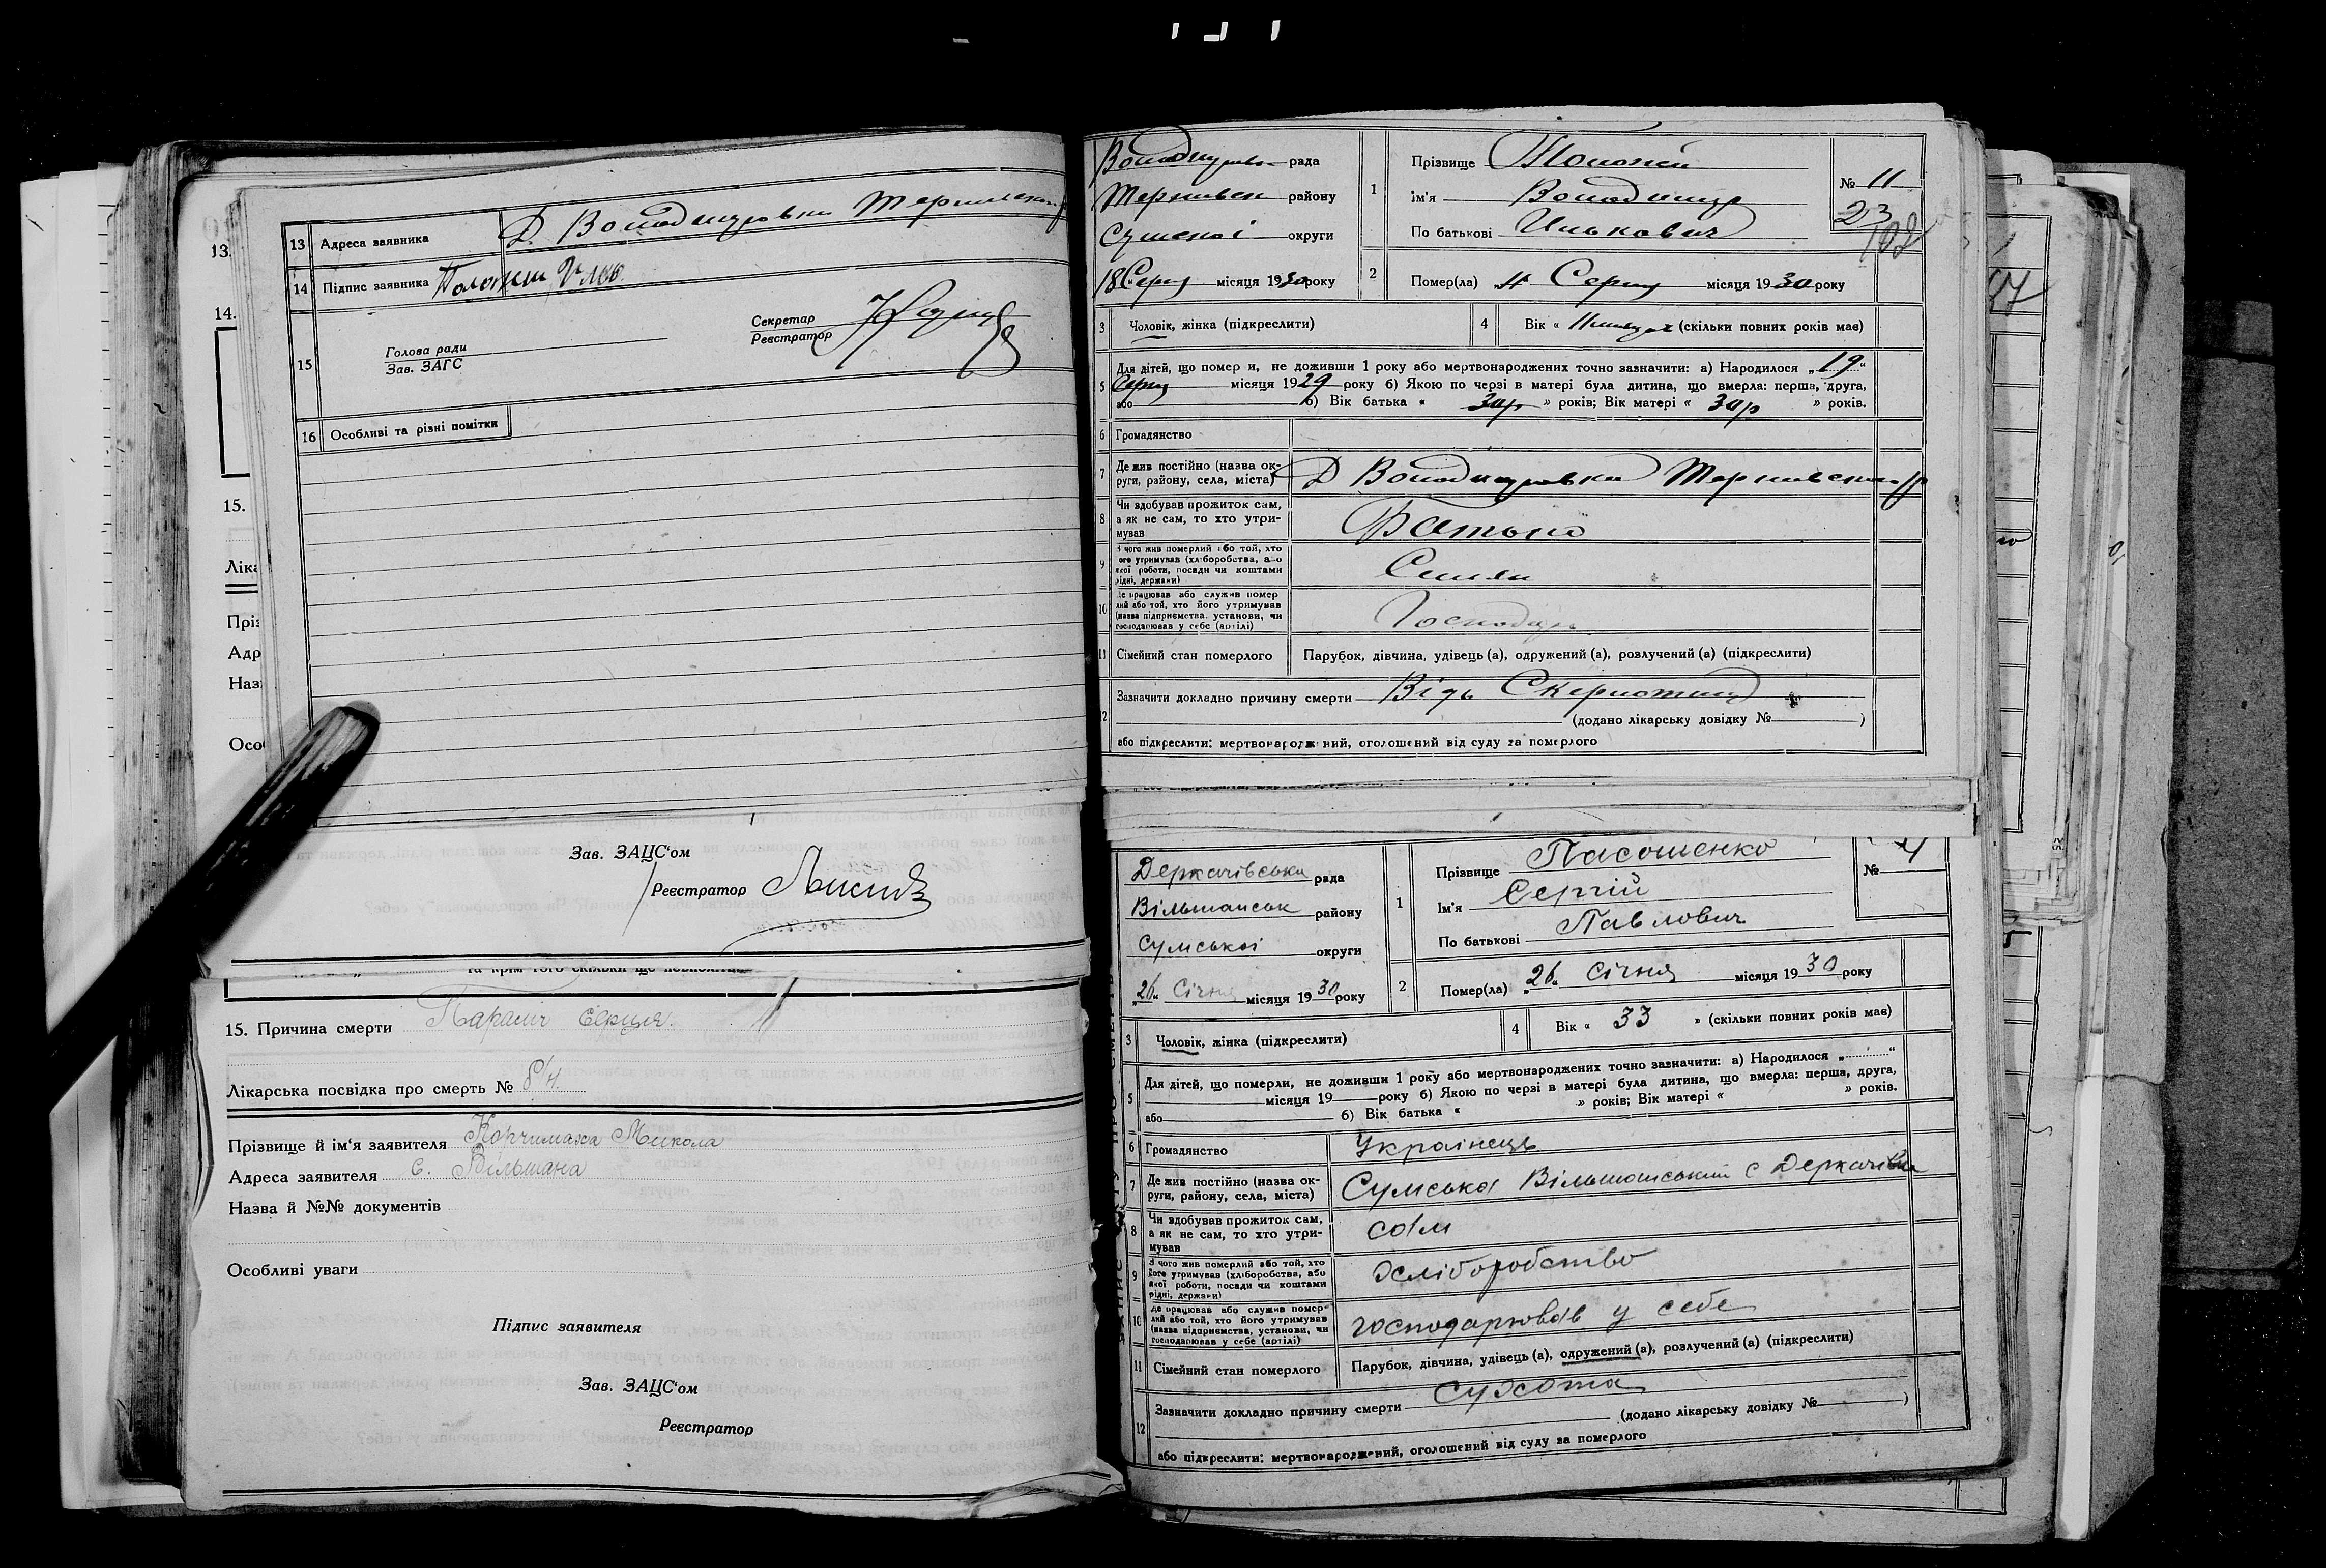 13.
14.
15.
Ліка
Пріз
Адр
Наз
Осо
13 Адреса заявника Д. Володимировка
14 Підпис заявника
Секретар
Реєстратор
15 Голова ради
Зав. ЗАГС
16 Особливі та різні помітки
Зав. ЗАЦС'ом
Реєстратор
15. Причина смерти Параліч серця.
Лікарська посвідка про смерть № б/н.
Прізвище й ім'я заявителя Микола
Адреса заявителя с. Вільшана
Назва й №№ документів
Особливі уваги
Підпис заявителя
Зав. ЗАЦС'ом
Реєстратор
рада
району
Сумської округи
18 Серпн місяця 1930 року
1 Прізвище
Ім'я Володимир
По батькові
№ 11
23
2 Помер(ла) Серпн місяця 1930 року
3 Чоловік, жінка (підкреслити)
4 Вік « » (скільки повних років має)
5 Для дітей, що померли, не доживши 1 року або мертвонароджених точно зазначити: а) Народилося „19“
Серпн місяця 1929 року б) Якою по черзі в матері була дитина, що вмерла: перша, друга,
або б) Вік батька « 30 р » років; Вік матері « 30 р » років.
6 Громадянство
7 Де жив постійно (назва ок-
руги, району, села, міста) Д Володимировка
8 Чи здобував прожиток сам,
а як не сам, то хто утри-
мував Батько
9 З чого жив померлий або той, хто
його утримував (хліборобства, або
якої роботи, посади чи коштами
рідні, держави)
10 Де працював або служив помер
лий або той, хто його утримував
(назва підприємства, установи, чи
господарював у себе (артілі)
11 Сімейний стан померлого Парубок, дівчина, удівець (а), одружений (а), розлучений (а) (підкреслити)
12 Зазначити докладно причину смерти Від Скарлатини
(додано лікарську довідку № )
або підкреслити: мертвонароджений, оголошений від суду за померлого
Деркачівська рада
Вільшанськ району
Сумської округи
„26“ Січня місяця 1930 року
1 Прізвище
Ім'я Сергій
По батькові Павлович
№
2 Помер(ла) „26“ Січня місяця 1930 року
3 Чоловік, жінка (підкреслити)
4 Вік « 33 » (скільки повних років має)
5 Для дітей, що померли, не доживши 1 року або мертвонароджених точно зазначити: а) Народилося „ “
місяця 19 року б) Якою по черзі в матері була дитина, що вмерла: перша, друга,
або б) Вік батька « » років; Вік матері « » років.
6 Громадянство Українець
7 Де жив постійно (назва ок-
руги, району, села, міста) Сумська Вільшанський с Деркачівка
8 Чи здобував прожиток сам,
а як не сам, то хто утри-
мував сам
9 З чого жив померлий або той, хто
його утримував (хліборобства, або
якої роботи, посади чи коштами
рідні, держави) хліборобство
10 Де працював або служив помер-
лий або той, хто його утримував
(назва підприємства, установи, чи
господарював у себе (артілі) господарював у себе
11 Сімейний стан померлого Парубок, дівчина, удівець (а), одружений (а), розлучений (а) (підкреслити)
12 Зазначити докладно причину смерти сухота
(додано лікарську довідку № )
або підкреслити: мертвонароджений, оголошений від суду за померлого